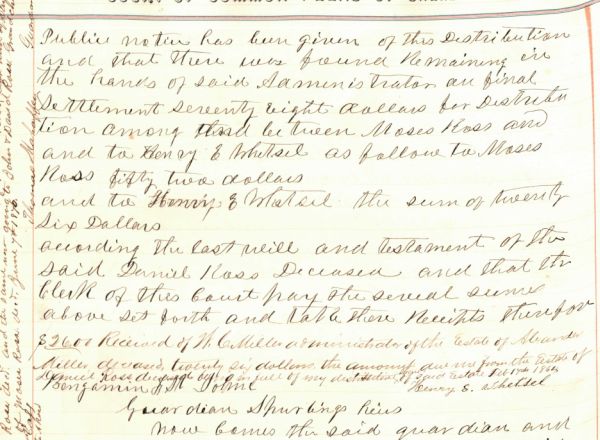 Public notice has been given of this Distribution
and that there was found Remaining in
the hands of said Administrator on final
Settlement seventy eight dollars for Distribu
tion among and between Moses Ross and
and to Henry E Whetsel as follow to Moses
Ross fifty two dollars
and to Henry E Whetsel the sum of twenty
Six Dollars
according the last will and testament of the
said Daniel Ross Deceased and that the
Clerk of this Court pay the several sums
above set forth and take there Receipts therefor
$26.00 Received of W. C. Miller administrator of the Estate of Alexander
Miller deceased, twenty six dollars, the amount due me from the Estate of
Daniel Ross deceased in full of my distributive of said Estate Feb 17th
Henry E. Whetsel
Benjamin
Guardian Spurlings heirs
Now comes the said guardian and